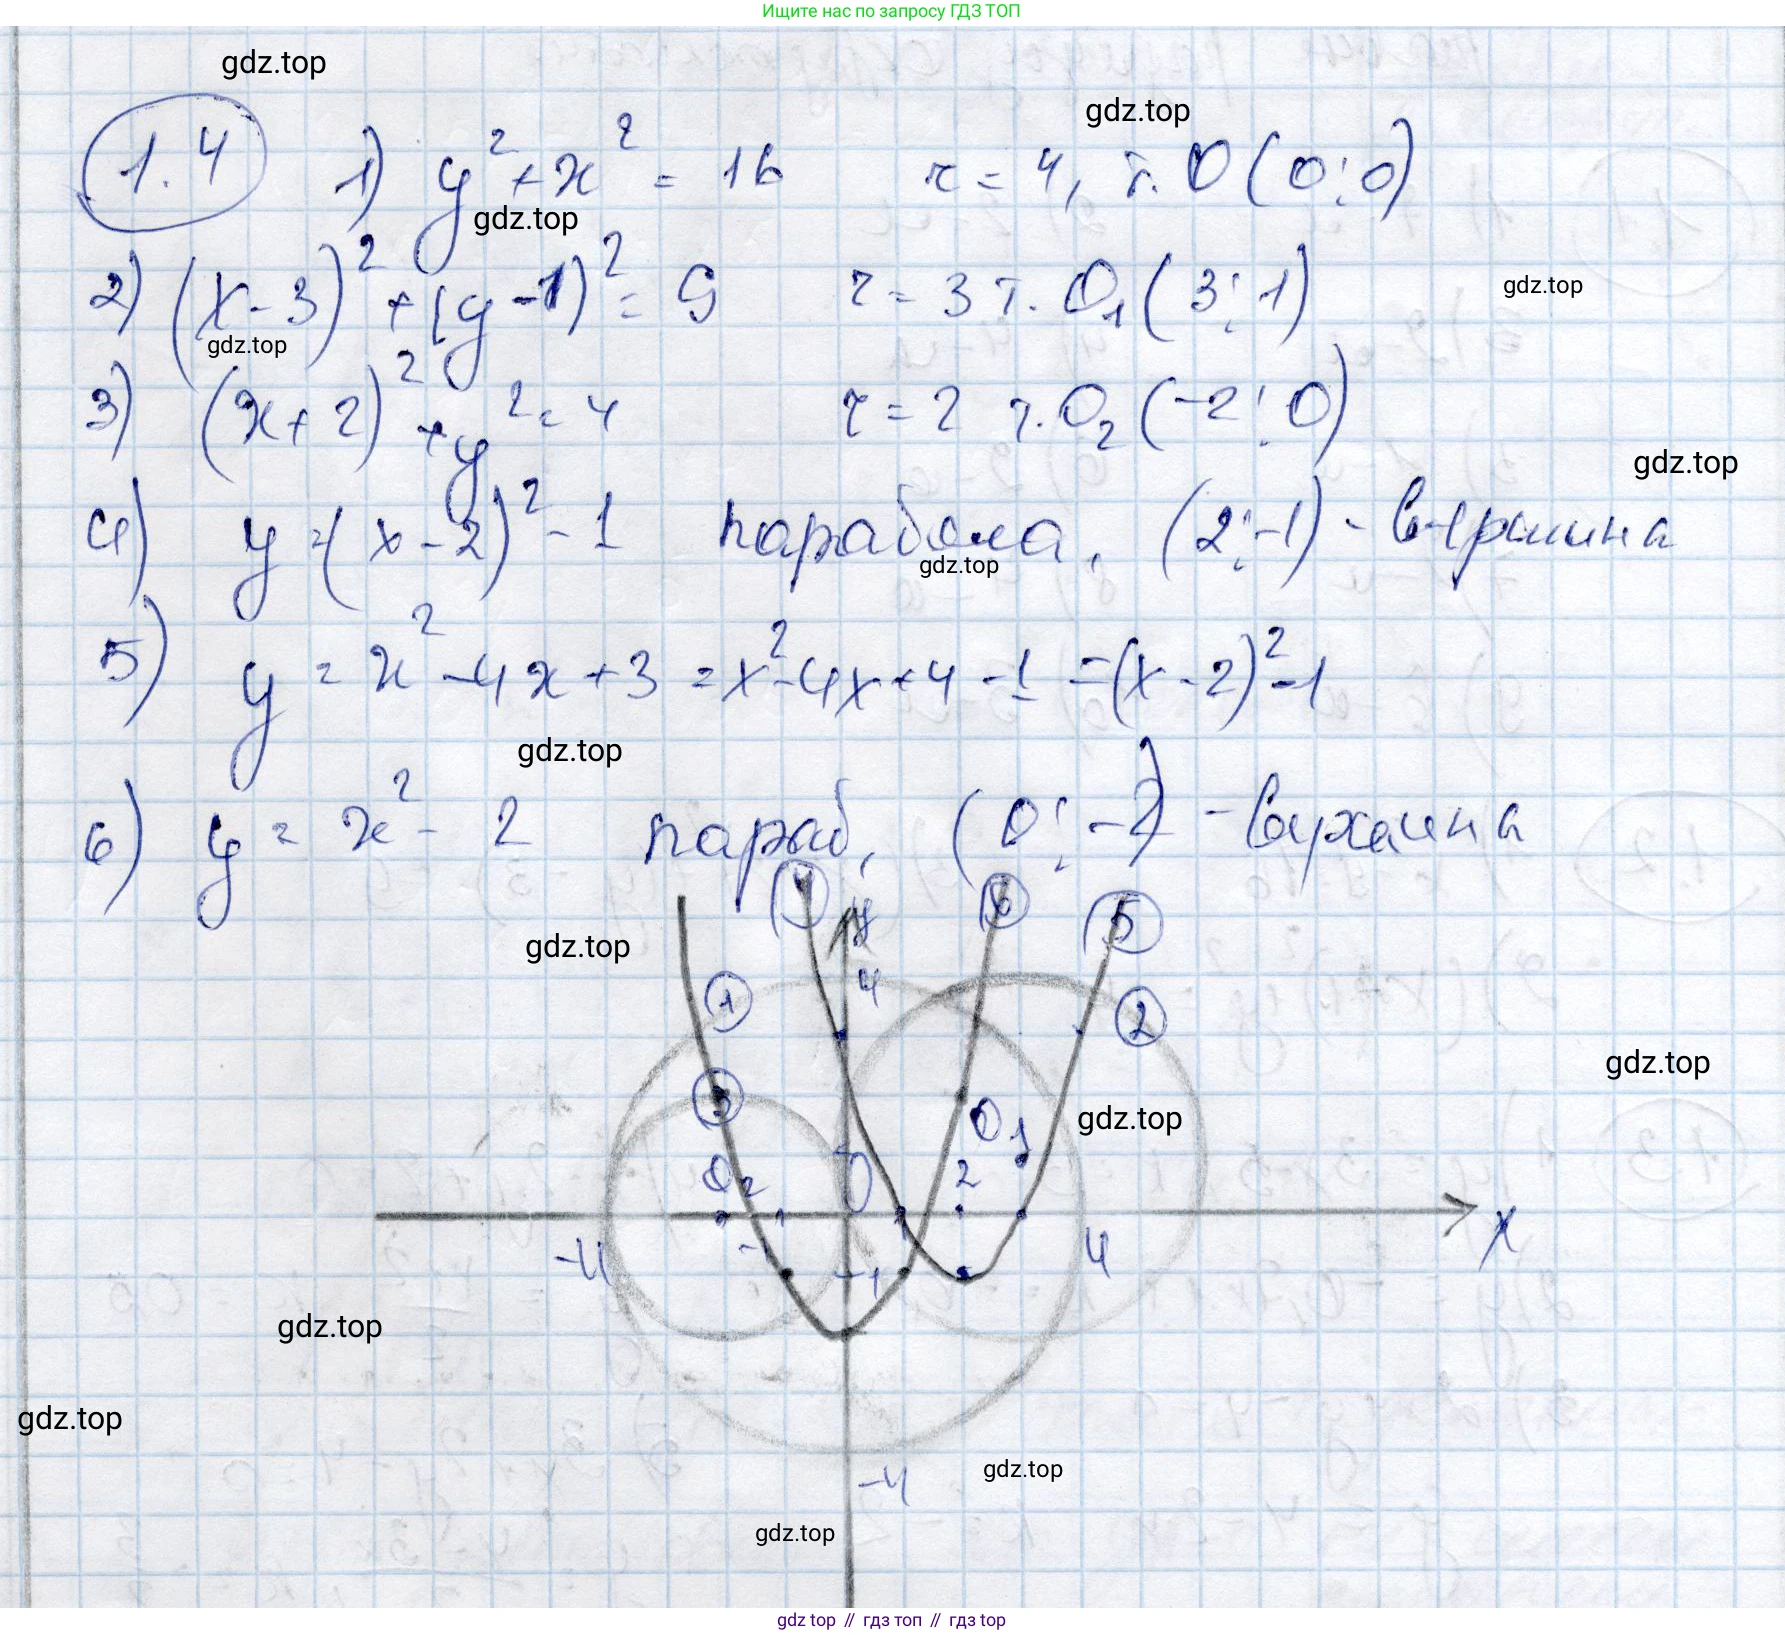 Ищите нас по запросу ГДЗ ТОП
gdz.top
gdz.top
1.4 1) y² + x² = 16 r = 4, т. O (0; 0)
gdz.top
2) (x - 3)² + (y - 1)² = 9 r = 3 т. O₁ (3; 1)
gdz.top
gdz.top
3) (x + 2)² + y² = 4 r = 2 т. O₂ (-2; 0)
gdz.top
4) y = (x - 2)² - 1 парабола, (2; -1) - вершина
gdz.top
5) y = x² - 4x + 3 = x² - 4x + 4 - 1 = (x - 2)² - 1
gdz.top
6) y = x² - 2 параб, (0; -2) - вершина
4 y 6 5
gdz.top
1 4 2
gdz.top
3 O₁ gdz.top
O₂ 0 2
-4 -1 1 4 x
-1
gdz.top
gdz.top
-4 gdz.top
gdz.top
gdz top // гдз топ // gdz top